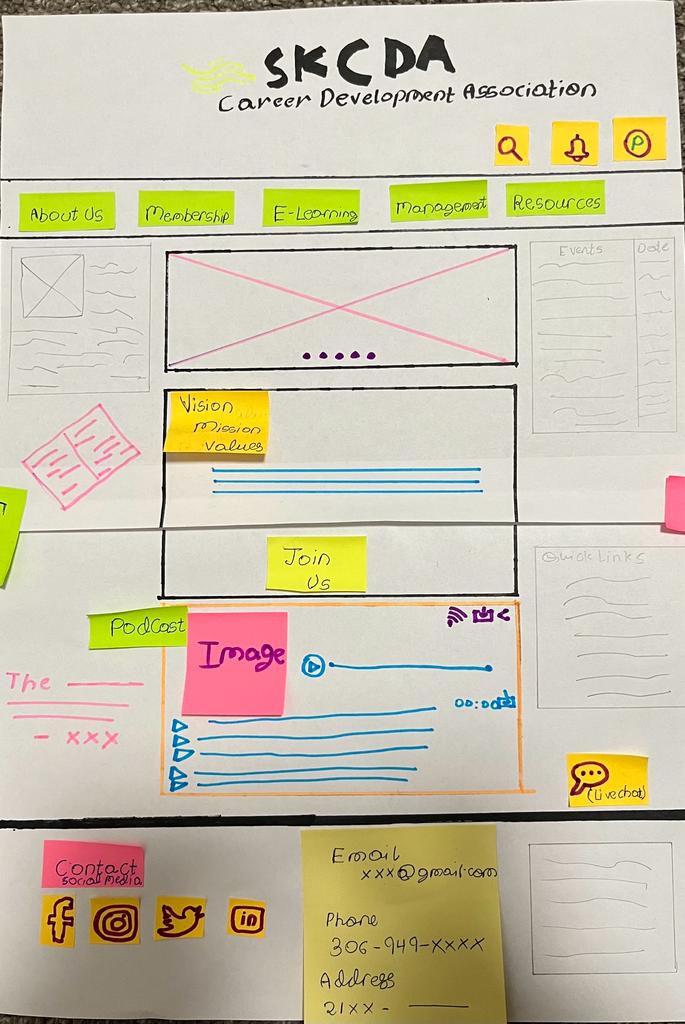 SKCDA
Career Development Association
P
About Us
Membership
E-Learning
Management
Resources
Events
Date
Vision
Mission
Values
Join
Us
Quick Links
Podcast
Image
The
- xxx
00:00
(Live chat)
Contact
social media
f
in
Email
xxx@gmail.com
Phone
306-949-xxxx
Address
21xx -